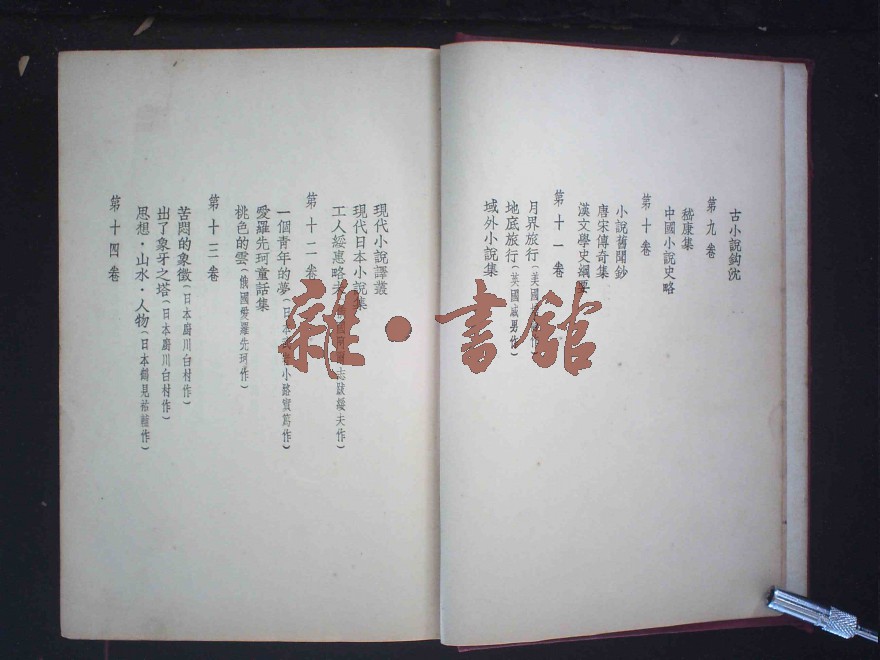 古小說鈎沈
第九卷
嵇康集
中國小說史略
第十卷
小說舊聞鈔
唐宋傳奇集
漢文學史綱要
第十一卷
月界旅行(美國 作)
地底旅行(英國威男作)
域外小說集
現代小說譯叢
現代日本小說集
工人綏惠略夫 志跋綏夫作)
第十二卷
一個青年的夢(日本 小路實篤作)
愛羅先珂童話集
桃色的雲(俄國愛羅先珂作)
第十三卷
苦悶的象徵(日本廚川白村作)
出了象牙之塔(日本廚川白村作)
思想·山水·人物(日本鶴見祐輔作)
第十四卷
雜·書館